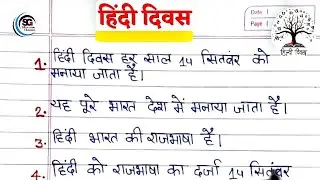 SG
हिंदी दिवस
Date
Page
हिन्दी दिवस
1. हिंदी दिवस हर साल 14 सितंबर को
मनाया जाता है।
2. यह पूरे भारत देश में मनाया जाता है।
3. हिंदी भारत की राजभाषा है।
4. हिंदी को राजभाषा का दर्जा 14 सितंबर